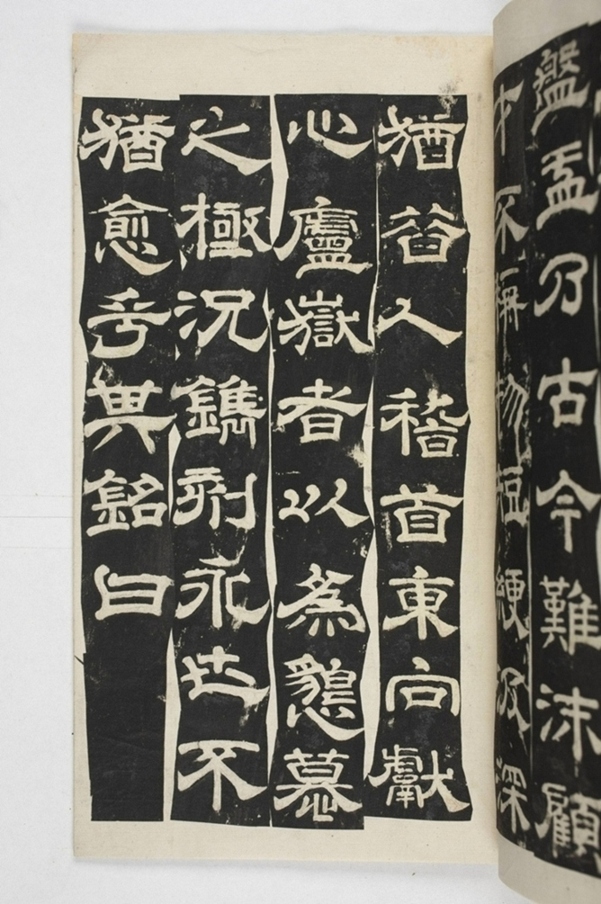 盤盂乃古今難沫顧
才不稱物短綆汲深
猶昔人稽首東向獻
心廬嶽者以為懇慕
之極況鐫刻永世不
猶愈乎其銘曰